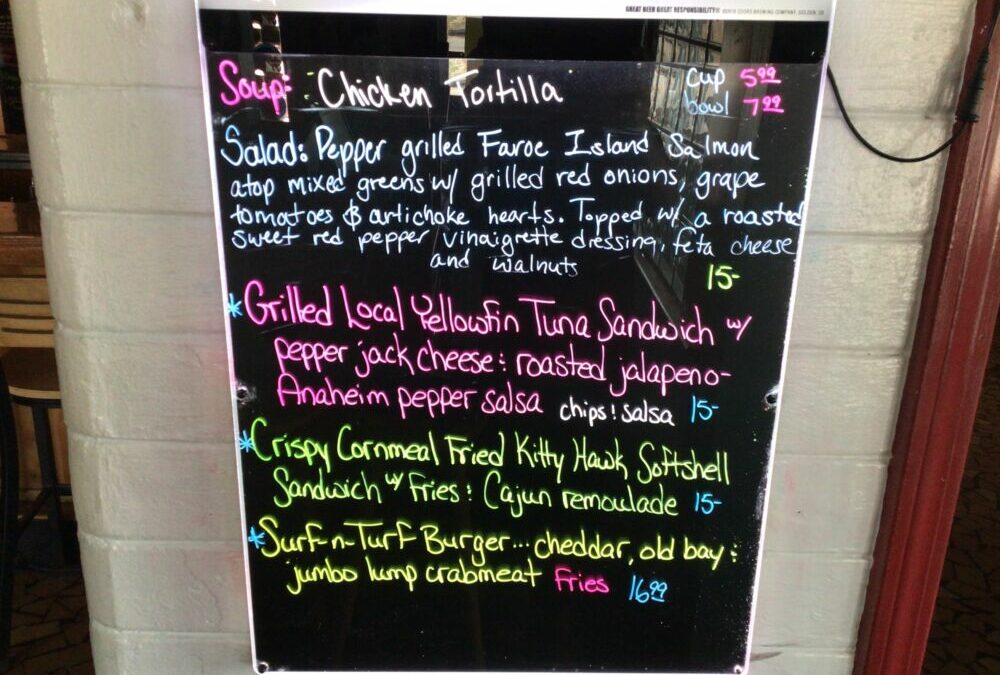 GREAT BEER GREAT RESPONSIBILITY®
Soup: Chicken Tortilla cup 5.99
bowl 7.99
Salad: Pepper grilled Faroe Island Salmon
atop mixed greens w/ grilled red onions, grape
tomatoes & artichoke hearts. Topped w/ a roasted
sweet red pepper vinaigrette dressing, feta cheese
and walnuts
15-
*Grilled Local Yellowfin Tuna Sandwich w/
pepper jack cheese & roasted jalapeno-
Anaheim pepper salsa chips & salsa 15-
*Crispy Cornmeal Fried Kitty Hawk Softshell
Sandwich w/ Fries & Cajun remoulade 15-
*Surf-n-Turf Burger... cheddar, old bay &
jumbo lump crabmeat Fries 16.99